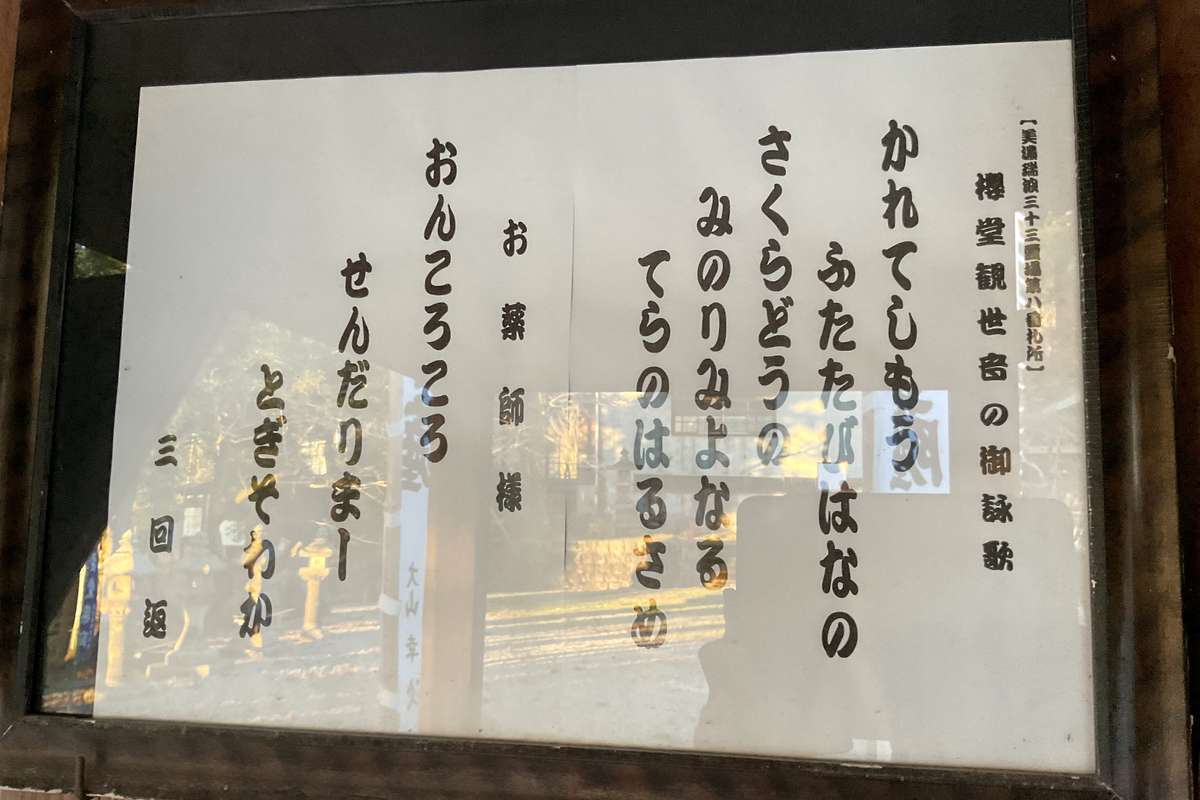 【美濃瑞浪三十三霊場第八番札所】
櫻堂観世音の御詠歌
かれてしもう
ふたたびはなの
さくらどうの
みのりみよなる
てらのはるさめ
お薬師様
おんころころ
せんだりまー
とぎそわか
三回返
大山幸